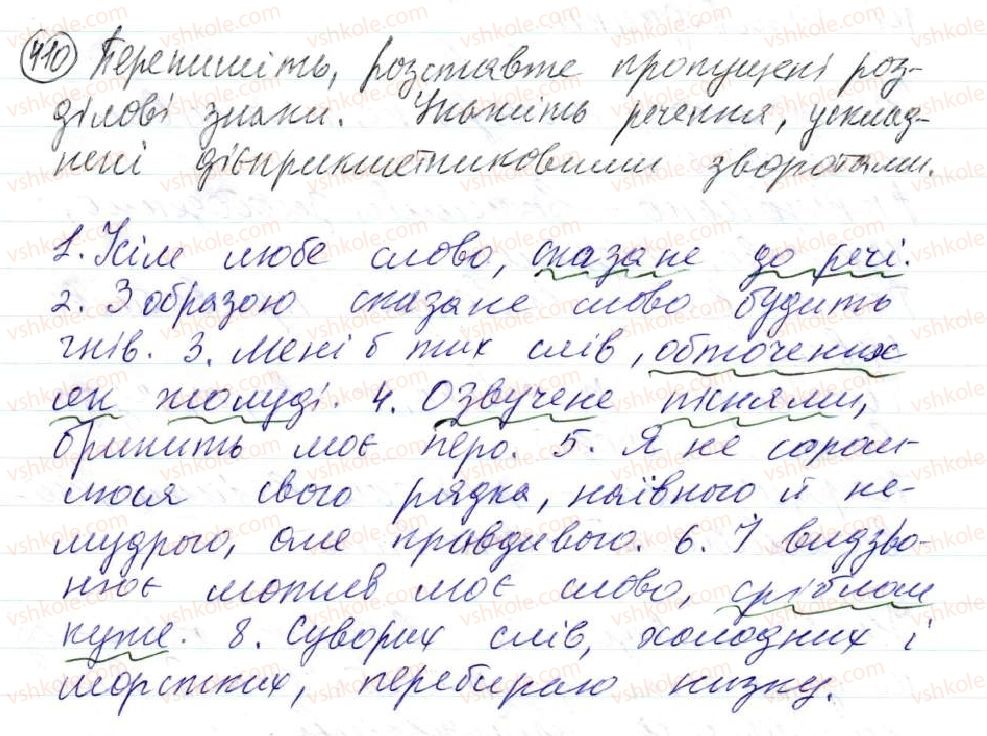 410 Перепишіть, розставте пропущені роз-
ділові знаки. Укажіть речення, усклад-
нені дієприкметниковими зворотами.
1. Усім любе слово, сказане до речі.
2. З образою сказане слово будить
гнів. 3. Мені б тих слів, обточених
як жолуді. 4. Озвучене піснями,
бринить моє перо. 5. Я не сором-
люся свого рядка, наївного й не-
мудрого, але правдивого. 6. І видзво-
нює мотив моє слово, сріблом
куте. 8. Суворих слів, холодних і
морстких, перебираю низку.